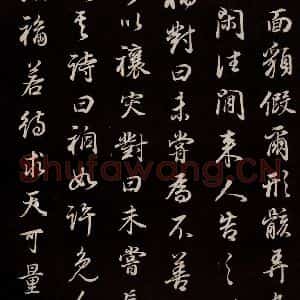 面䫉假爾形骸弄
閑往間來人告之
對曰未嘗爲不善
以禳灾對曰未嘗
詩曰禍如許免人
福若待求天可量
Shufawang.CN